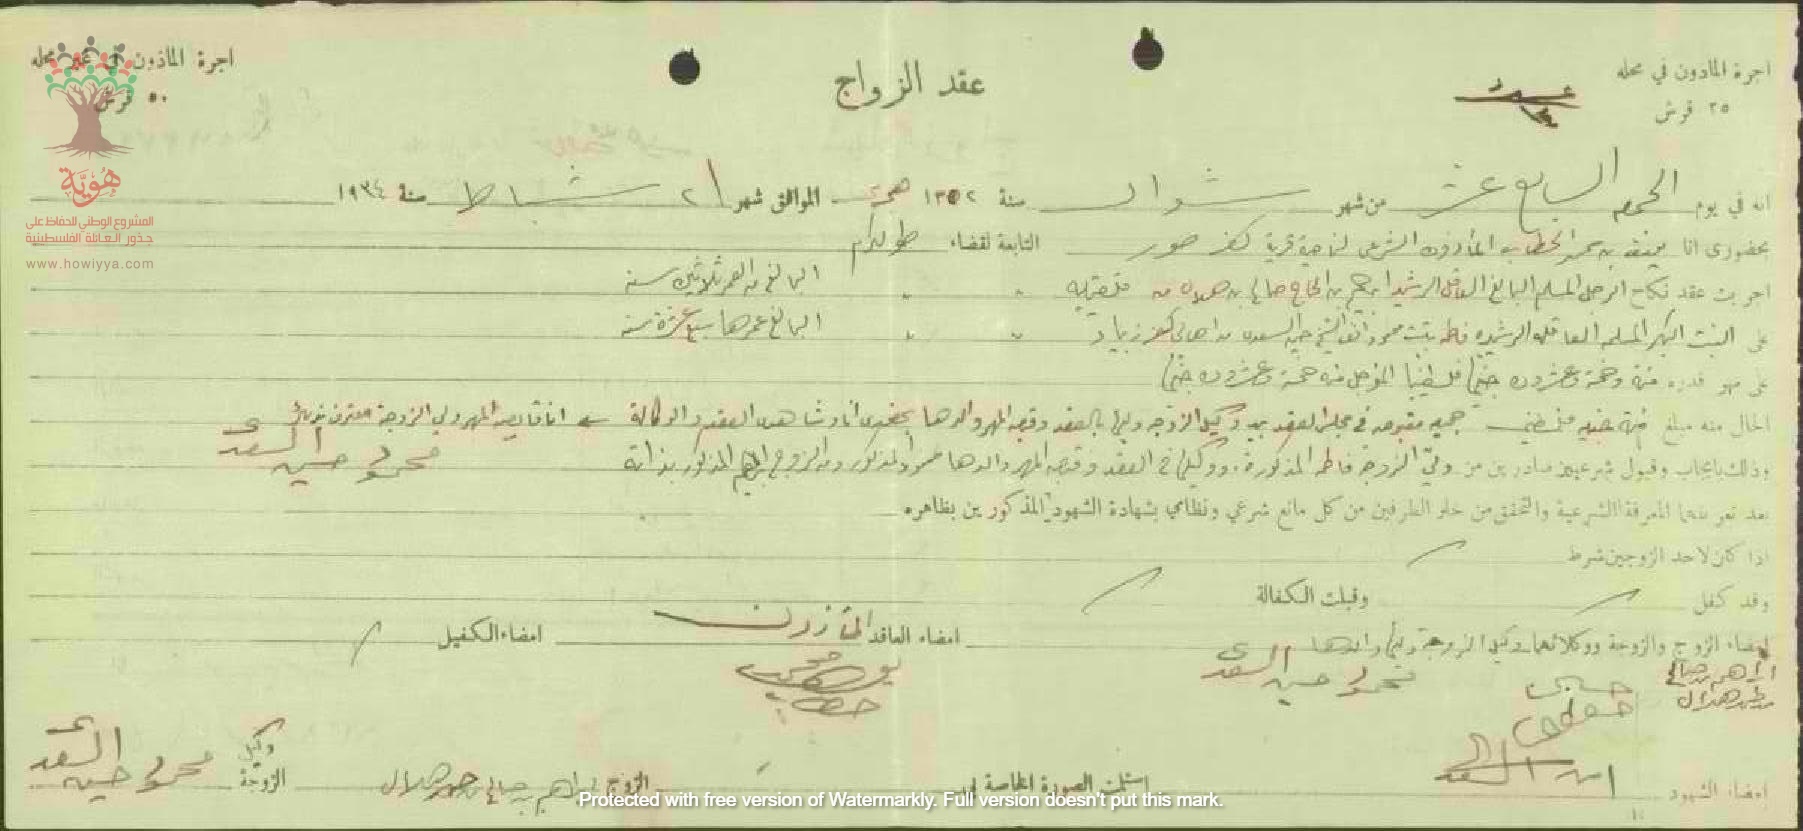 اجرة المأذون في محله
٢٥ قرش
عقد الزواج
اجرة المأذون في غير محله
٥٠ قرش
هُوِيَّة
المشروع الوطني للحفاظ على
جذور العائلة الفلسطينية
www.howiyya.com
انه في يوم الجمعه السابع عشر من شهر شوال سنة ١٣٥٢ هجرية الموافق شهر ٢ شباط سنة ١٩٣٤
بحضوري انا الخطاب المأذون الشرعي لناحية قرية كفر صور التابعة لقضاء طولكرم
اجريت عقد نكاح الرجل المسلم البالغ العاقل الرشيد ابراهيم بن الحاج صالح من قلقيليه البالغ من العمر ثلاثين سنة
على البنت البكر المسلمه العاقله الرشيده فاطمه بنت محمود السعدي من اهالي كفر زيباد البالغ عمرها سبع عشرة سنه
على مهر قدره مئة وخمسة وعشرون جنيها فلسطينيا المؤجل منه خمسة وعشرون جنيها
الحال منه مبلغ مئة جنيه فلسطيني جميعه مقبوضه في مجلس العقد بيد وكيل الزوجه وليها بالعقد وقبض المهر والدها بحضوري انا وشاهدي العقد والوكالة انا قابض المهر ولي الزوجة
محمود حسين السعدي
وذلك بايجاب وقبول شرعيين صادرين من ولي الزوجة فاطمه المذكورة ووكيلها في العقد وقبض المهر والدها محمود المذكور ومن الزوج ابراهيم المذكور بذاته
بعد تعريفهما المعرفة الشرعية والتحقق من خلو الطرفين من كل مانع شرعي ونظامي بشهادة الشهود المذكورين بظاهره
اذا كان لاحد الزوجين شرط
وقد كفل وقبلت الكفالة
امضاء الزوج والزوجة ووكلائهما وكيل الزوجة وليها والدها امضاء العاقد المأذون امضاء الكفيل
محمود حسين السعدي
امضاء الشهود
استلمت الصورة الخاصة لي
الزوج ابراهيم صالح
وكيل الزوجة محمود حسين السعدي
Protected with free version of Watermarkly. Full version doesn't put this mark.